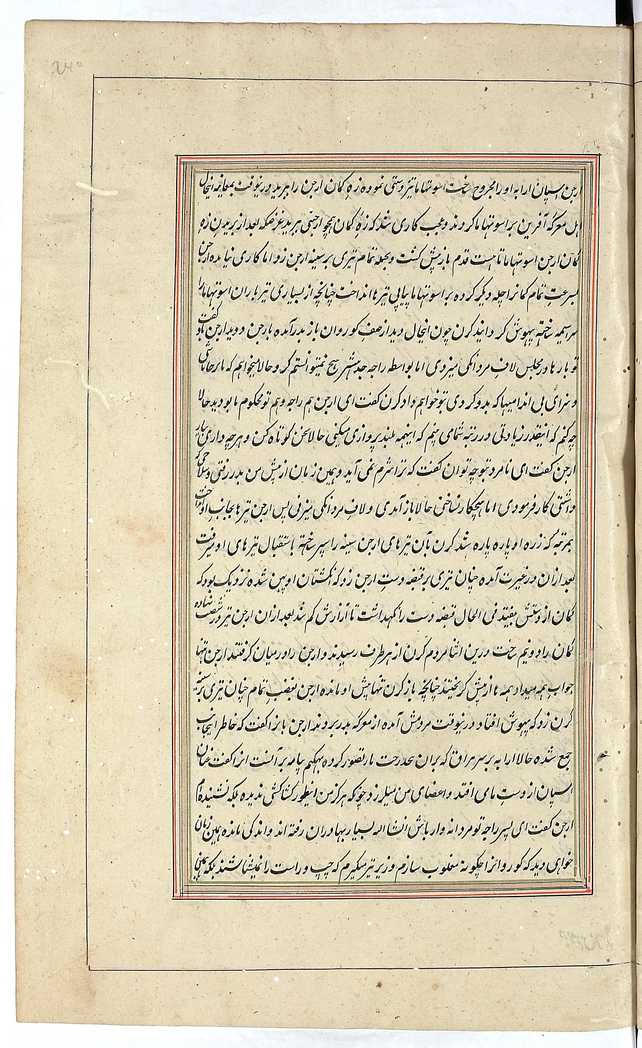 ارجن اسپان ارابه او را مجروح ساخت اسوتهاما تیزدستی نموده زه کمان ارجن را ببرید در نیوقت بمعاینه اینحال
اهل معرکه آفرین بر اسوتهاما کردند و عجب کاری شد که زه کمان همچو ارجنی ببرید غرضکه بعد از بریدن زه
کمان ارجن اسوتهاما تا هشت قدم بازپس گشت و بجمله تمام تیری بر سینه ارجن زد اما کاری نیامده ارجن
بسرعت تمام کمانرا چله دیگر کرده بر اسوتهاما پیاپی تیرها انداخت چنانچه از بسیاری تیرباران اسوتهاما را
سراسیمه ساخته بیهوش گردانید کرن چون اینحال دید از صف کوروان باز بدر آمده بارجن دوید ارجن باو گفت
تو بارها در مجلس لاف مردانگی میزدی اما بواسطه راجه جدهشتر هیچ نمیتوانستم کرد حالا میخواهم که
و سزای بی اندامیها که بدو کردی بتو خواهم داد کرن گفت ای ارجن هم راجه و هم تو محکوم ما بودید حالا
چه کنم که اینقدر زیادتی در رتبه شما می بینم که اینهمه بلندپروازی میکنی حالا سخن کوتاه کن و هرچه داری بیار
ارجن گفت ای نامرد بتو چه توان گفت که ترا شرم نمی آید و همین زمان از پیش من بدر رفتی و سلاحی که
داشتی کار فرمودی اما هیچکار نساختی حالا باز آمدی و لاف مردانگی میزنی پس ارجن تیرها بجانب او انداخت
بمرتبه که زره او پاره پاره شد کرن بآن تیرهای ارجن سینه را سپر ساخته باستقبال تیرهای او میرفت
بعد از آن در غیرت آمده چنان تیری بر قبضه دست ارجن زد که انگشتان او پس شده نزدیک بود که
کمان از دستش بیفتد فی الحال قبضه دست را نگهداشت تا آزارش کم شد بعد از آن ارجن تیر در شصت نهاده
کمان را دو نیم ساخت درین اثنا مردم کرن از هر طرف رسیدند و ارجن را در میان گرفتند ارجن تنها
جواب همه میداد همه ها از پیش گریختند چنانچه باز کرن تنها پیش او مانده ارجن بغضب تمام چنان تیری بر سینه
کرن زد که بیهوش افتاد در نیوقت مردمش آمده از معرکه بدر بردند ارجن بازا گفت که خاطر اینجانب
جمع شده حالا ارابه بر سر هر اق که بران درخت تار تصور کرده بهیکم پتامه بر آنست از گفت عنان
اسپان از دست ما می افتد و اعضای من میلرزد چرا که هرگز من اینطور کشاکشی ندیده بلکه نشنیده ام
ارجن گفت ای پسر راجه تو مردانه وار باش انشاالله بسیار بهادران رفته اند و اندکی مانده همین زمان
خواهی دید که کوروانرا چگونه مغلوب سازم و زیر تیر میگیرم که چپ و راست را نمیشناسند بلکه